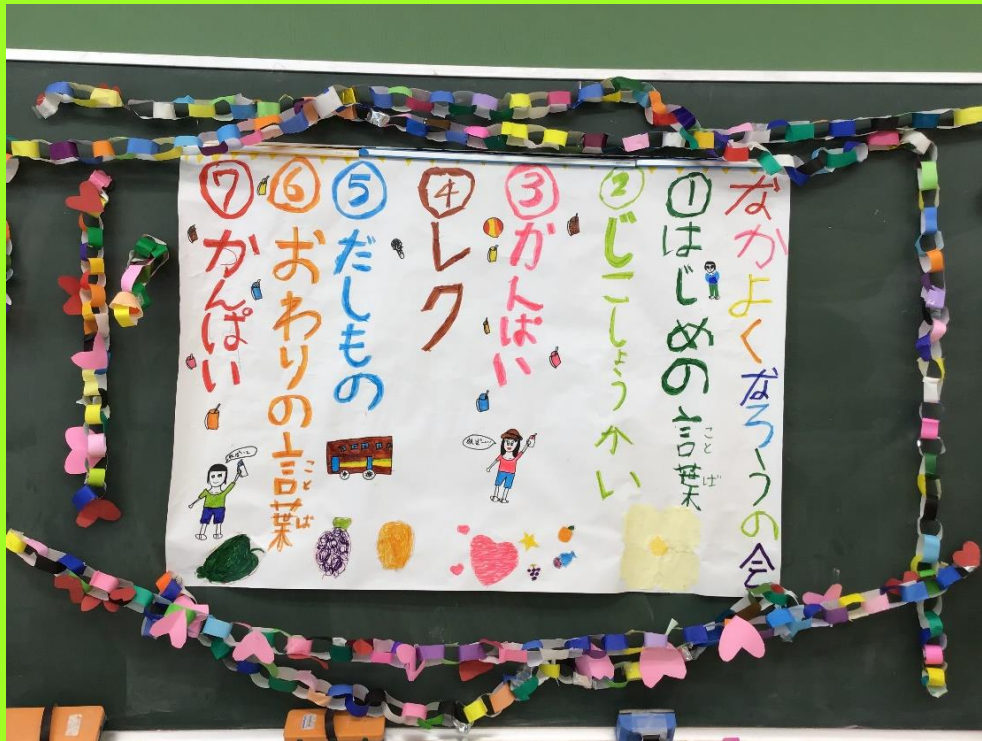 なかよくなろうの会
①はじめの言葉
ことば
②じこしょうかい
③かんぱい
④レク
⑤だしもの
⑥おわりの言葉
ことば
⑦かんぱい